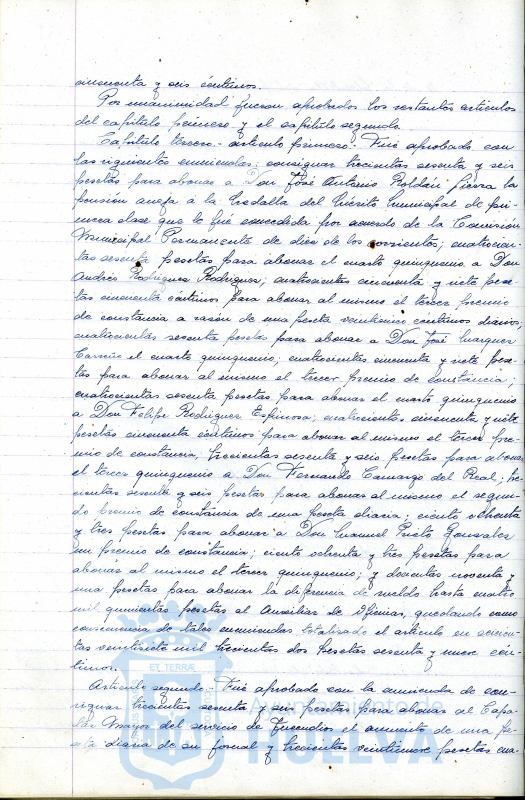 cincuenta y seis céntimos.
Por unanimidad fueron aprobados los restantes artículos
del capítulo primero y el capítulo segundo.
Capítulo tercero.- artículo primero.- Fué aprobado con
las siguientes enmiendas: consignar trescientas sesenta y seis
pesetas para abonar a Don José Antonio Roldán Sierra la
pensión aneja a la Medalla del Mérito Municipal de pri-
mera clase que le fué concedida por acuerdo de la Comisión
Municipal Permanente de diez de los corrientes; cuatrocien-
tas sesenta pesetas para abonar el cuarto quinquenio a Don
Andrés Rodríguez Rodríguez; cuatrocientas cincuenta y siete pese-
tas cincuenta céntimos para abonar al mismo el tercer premio
de constancia a razón de una peseta veinticinco céntimos diarios;
cuatrocientas sesenta pesetas para abonar a Don José Marquez
Carreño el cuarto quinquenio; cuatrocientas cincuenta y siete pese-
tas para abonar al mismo el tercer premio de constancia;
cuatrocientas sesenta pesetas para abonar el cuarto quinquenio
a Don Felipe Rodríguez Espinosa; cuatrocientas cincuenta y siete
pesetas cincuenta céntimos para abonar al mismo el tercer pre-
mio de constancia, trescientas sesenta y seis pesetas para abonar
el tercer quinquenio a Don Fernando Camargo del Real; tres-
cientas sesenta y seis pesetas para abonar al mismo el segun-
do premio de constancia de una peseta diaria; ciento ochenta
y tres pesetas para abonar a Don Manuel Prieto Gonzalez
un premio de constancia; ciento ochenta y tres pesetas para
abonar al mismo el tercer quinquenio; y doscientas noventa y
una pesetas para abonar la diferencia de sueldo hasta cuatro
mil quinientas pesetas al Auxiliar de Oficinas, quedando como
consecuencia de tales enmiendas totalizado el artículo en
tas veintiseis mil trescientas dos pesetas sesenta y nueve cén-
timos.
Artículo segundo.- Fué aprobado con la enmienda de con-
signar trescientas sesenta y seis pesetas para abonar al Capa-
taz Mayor del servicio de Incendios el aumento de una pe-
seta diaria de su jornal y trescientas veintinueve pesetas cua-
ET TERRÆ
Ayuntamiento de
HUELVA